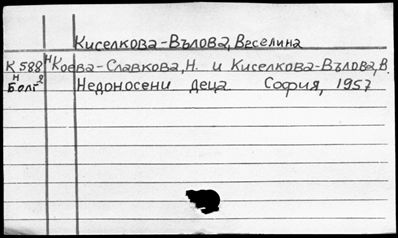 Киселкова-Вълова, Веселина
К588 Н Коева-Славкова, Н. и Киселкова-Вълова, В.
Н Болг2 Недоносени деца София, 1957